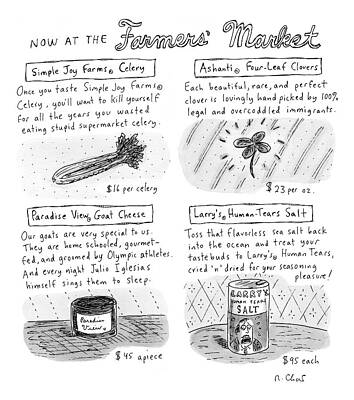 NOW AT THE Farmers' Market
Simple Joy Farms® Celery
Once you taste Simple Joy Farms®
Celery, you'll want to kill yourself
for all the years you wasted
eating stupid supermarket celery.
$16 per celery
Ashanti® Four-Leaf Clovers
Each beautiful, rare, and perfect
clover is lovingly hand picked by 100%
legal and overcoddled immigrants.
$23 per oz.
Paradise View® Goat Cheese
Our goats are very special to us.
They are home schooled, gourmet-
fed, and groomed by Olympic athletes.
And every night Julio Iglesias
himself sings them to sleep.
Paradise
View®
$45 apiece
Larry's® Human-Tears Salt
Toss that flavorless sea salt back
into the ocean and treat your
tastebuds to Larry's® Human Tears,
cried 'n' dried for your seasoning
pleasure!
LARRY'S
HUMAN TEARS
SALT
$95 each
R. Chast